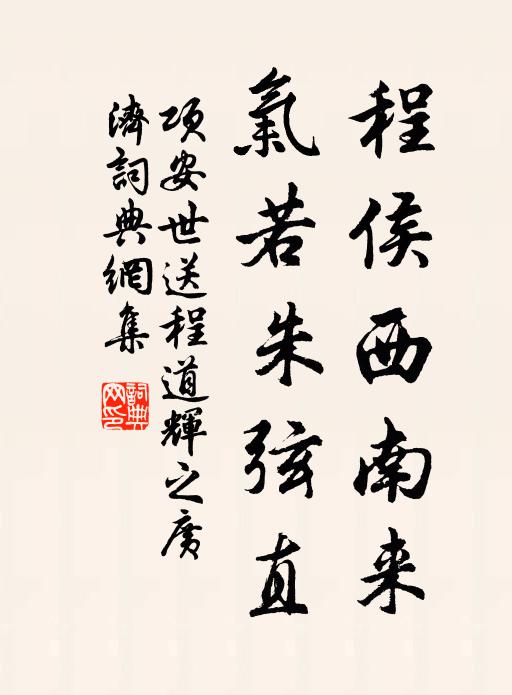 程侯西南来
氣若朱弦直
项安世送程道輝之廣
濟詞典網集
詞典
网印